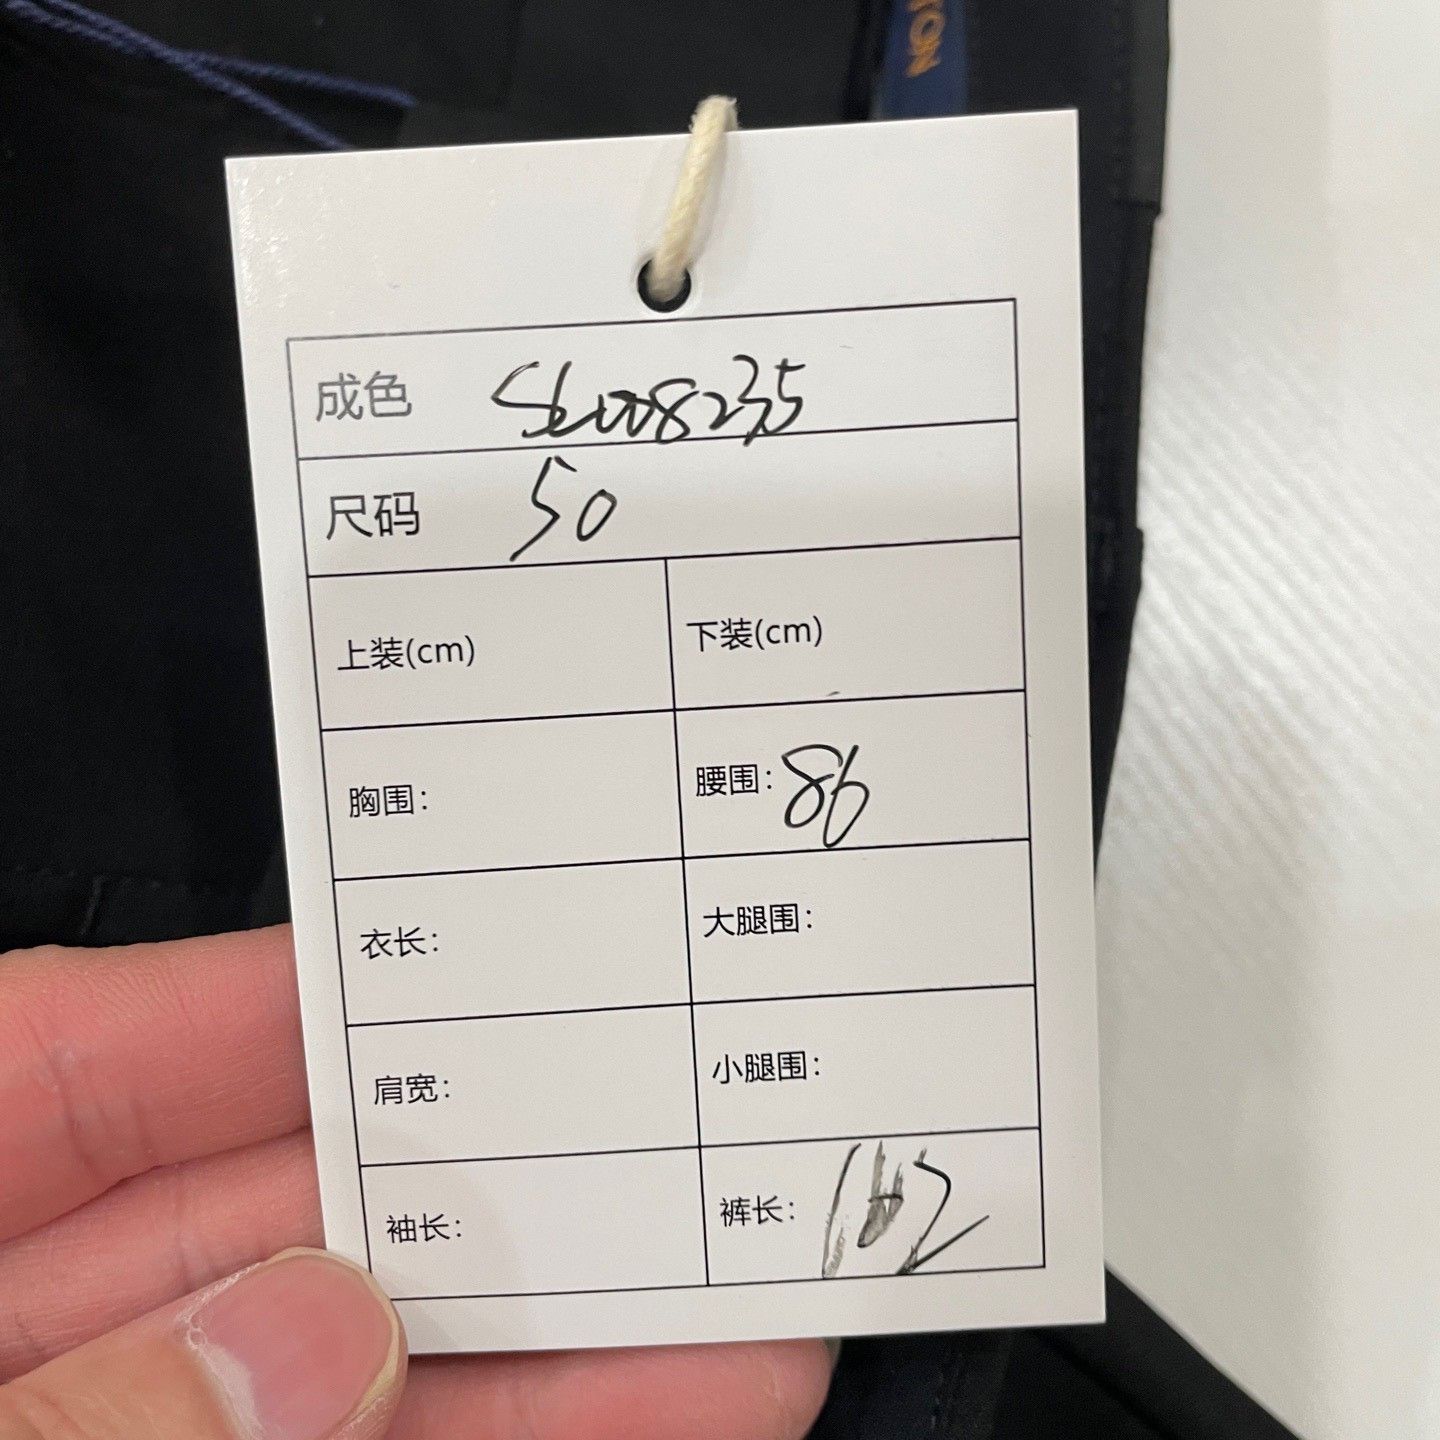 TON
成色
尺码 50
上装(cm) 下装(cm)
胸围： 腰围：86
衣长： 大腿围：
肩宽： 小腿围：
袖长： 裤长：102